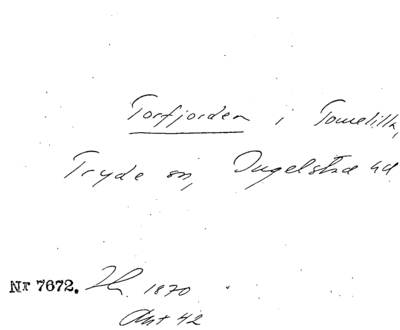 Torfjorden i Tomelilla,
Tryde sn, Ingelstad hd
Nr 7672. 1870
Ant 42